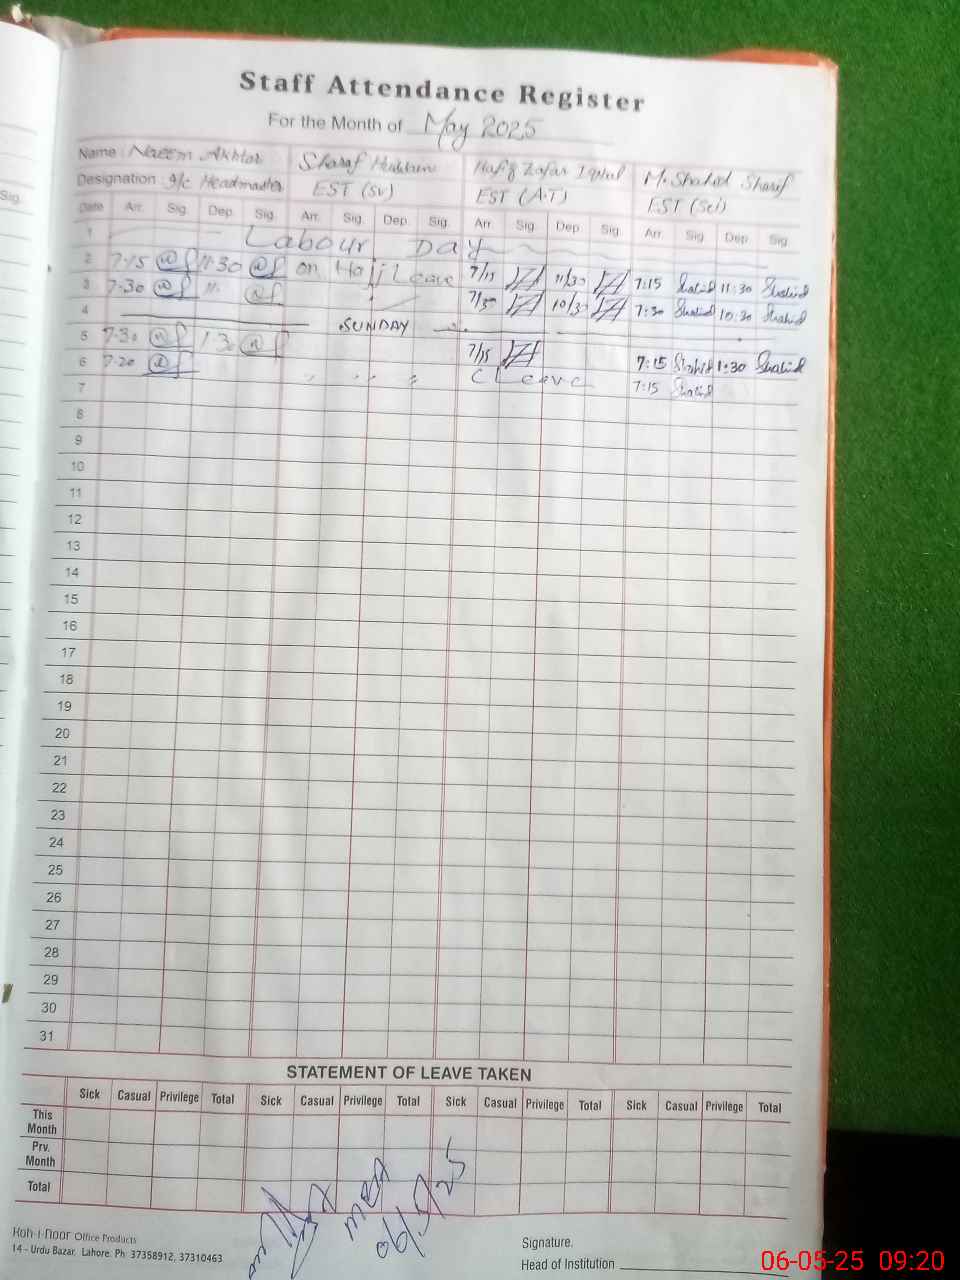 Staff Attendance Register
For the Month of May 2025
Name: Naeem Akhtar Sharaf Hafiz Zafar Iqbal M. Shahid Sharif
Designation: I/c Headmaster EST (SV) EST (A.T) EST (Sci)
Date Arr. Sig. Dep. Sig. Arr. Sig. Dep. Sig. Arr. Sig. Dep. Sig. Arr. Sig. Dep. Sig.
1 Labour Day
2 7-15 11-30 on Hajj Leave 7/15 11/30 7:15 Shahid 11:30 Shahid
3 7-30 11- 7/30 10/30 7:30 Shahid 10:30 Shahid
4 SUNDAY
5 7-30 1-30 7/15 7:15 Shahid 1:30 Shahid
6 7-20 C Leave 7:15 Shahid
7
8
9
10
11
12
13
14
15
16
17
18
19
20
21
22
23
24
25
26
27
28
29
30
31
STATEMENT OF LEAVE TAKEN
Sick Casual Privilege Total Sick Casual Privilege Total Sick Casual Privilege Total Sick Casual Privilege Total
This Month
Prv. Month
Total
6/5/25
Koh-i-Noor Office Products
14 - Urdu Bazar, Lahore. Ph: 37358912, 37310463
Signature.
Head of Institution
06-05-25 09:20
Sig.